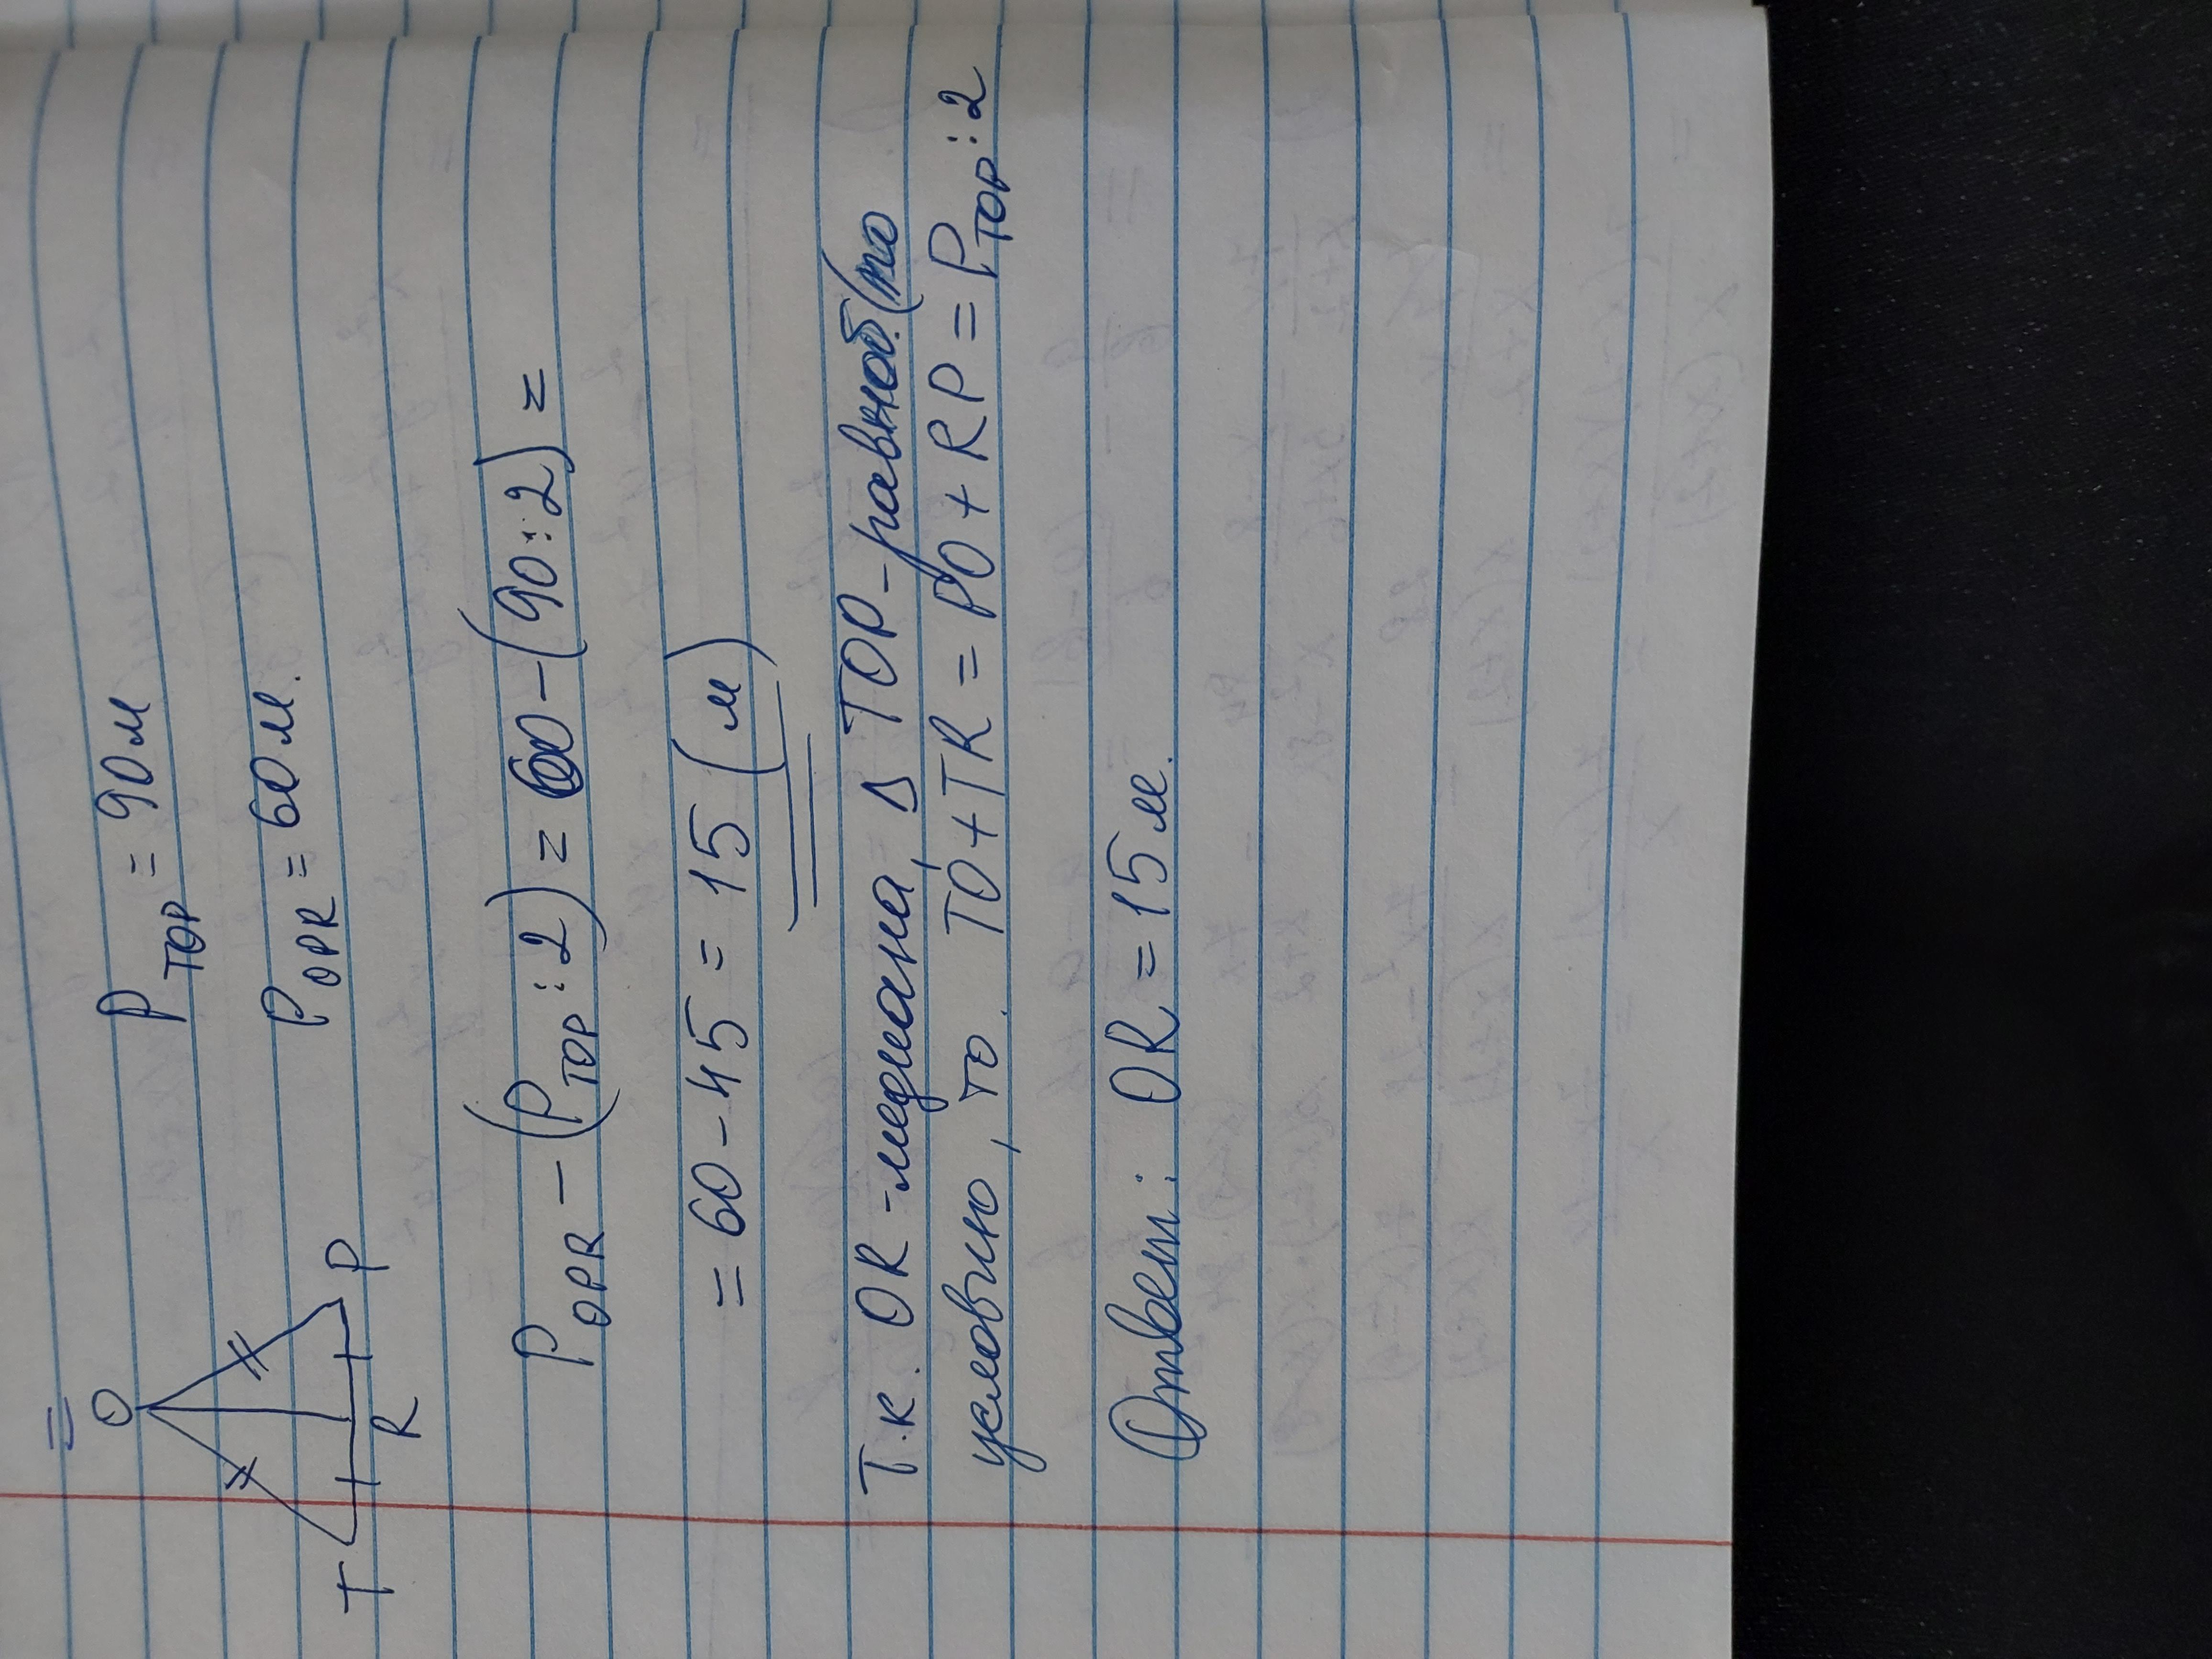 O
T R P
P TOP = 90 м
P OPR = 60 м.
P OPR - (P TOP : 2) = 60 - (90 : 2) =
= 60 - 45 = 15 (м)
Т.к. OR - медиана, Δ TOP - равноб. (по
условию, то. TO + TR = PO + RP = P TOP : 2
Ответ: OR = 15 м.